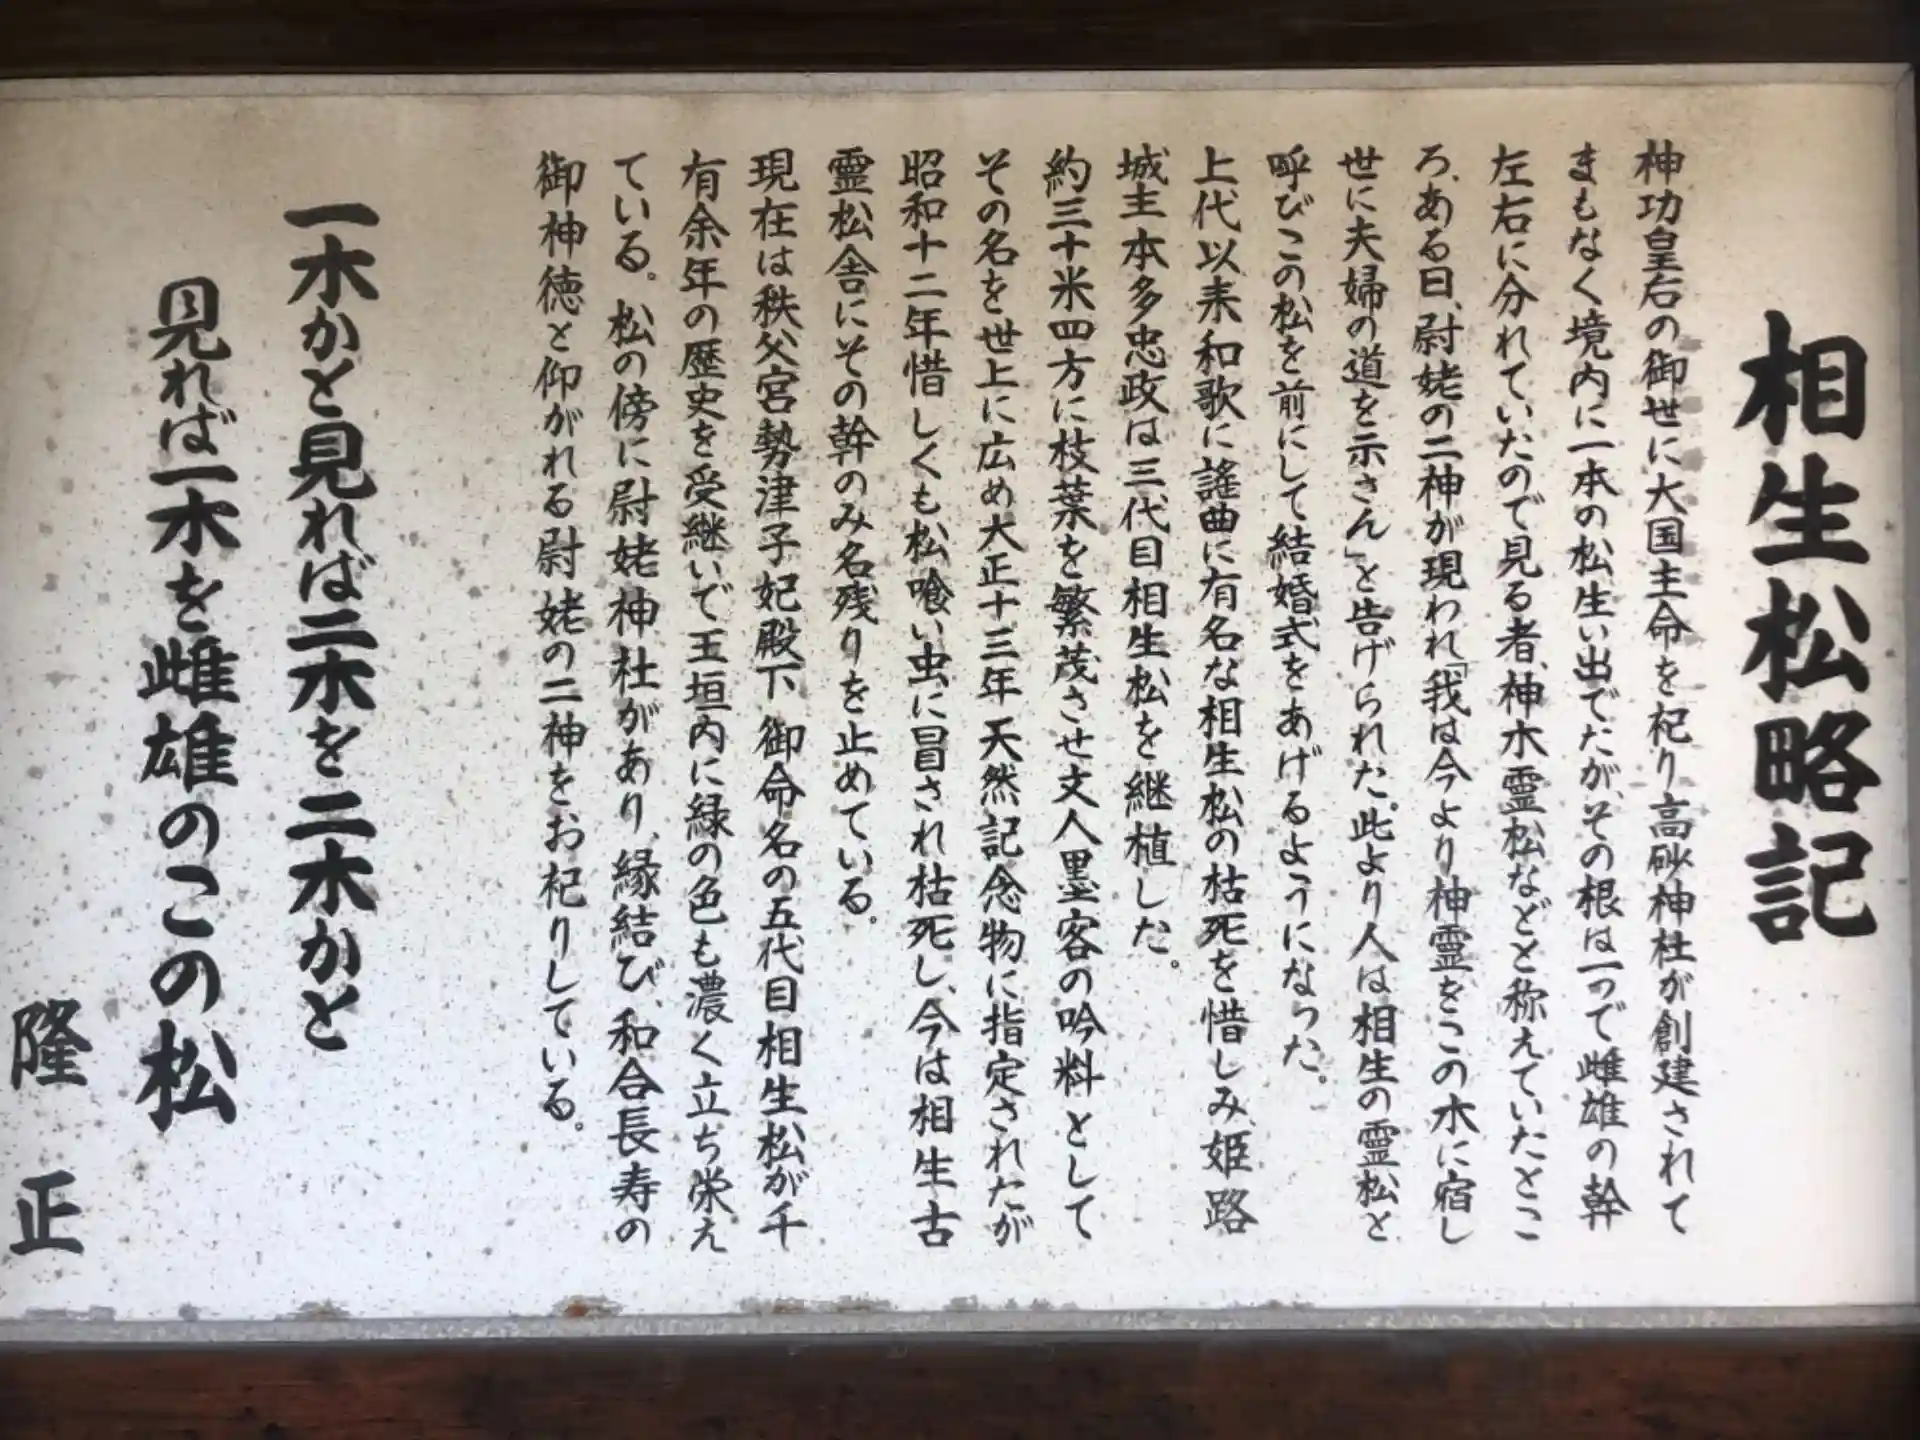 相生松略記
神功皇后の御世に大国主命を祀り高砂神社が創建されて
まもなく境内に一本の松生い出でたが、その根は一つで雌雄の幹
左右に分れていたので見る者、神木霊松などと称えていたとこ
ろ、ある日、尉姥の二神が現われ「我は今より神霊をこの木に宿し
世に夫婦の道を示さん」と告げられた。此より人は相生の霊松と
呼びこの松を前にして結婚式をあげるようになった。
上代以来和歌に謠曲に有名な相生松の枯死を惜しみ、姫路
城主本多忠政は三代目相生松を継植した。
約三十米四方に枝葉を繁茂させ文人墨客の吟料として
その名を世上に広め大正十三年天然記念物に指定されたが
昭和十二年惜しくも松喰い虫に冒され枯死し、今は相生古
霊松舎にその幹のみ名残りを止めている。
現在は秩父宮勢津子妃殿下御命名の五代目相生松が千
有余年の歴史を受継いで玉垣内に緑の色も濃く立ち栄え
ている。松の傍に尉姥神社があり、縁結び、和合長寿の
御神徳と仰がれる尉姥の二神をお祀りしている。
一木かと見れば二木を二木かと
見れば一木を雌雄のこの松
隆正